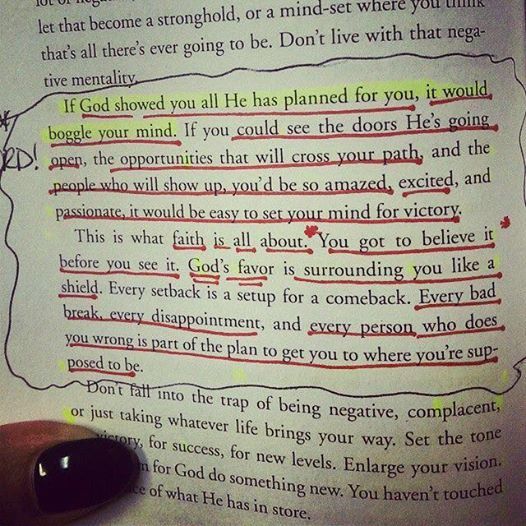 let that become a stronghold, or a mind-set where you think
that's all there's ever going to be. Don't live with that nega-
tive mentality.
If God showed you all He has planned for you, it would
boggle your mind. If you could see the doors He's going
RD! open, the opportunities that will cross your path, and the
people who will show up, you'd be so amazed, excited, and
passionate, it would be easy to set your mind for victory.
This is what faith is all about. You got to believe it
before you see it. God's favor is surrounding you like a
shield. Every setback is a setup for a comeback. Every bad
break, every disappointment, and every person who does
you wrong is part of the plan to get you to where you're sup-
posed to be.
Don't fall into the trap of being negative, complacent,
or just taking whatever life brings your way. Set the tone
victory, for success, for new levels. Enlarge your vision.
for God do something new. You haven't touched
of what He has in store.